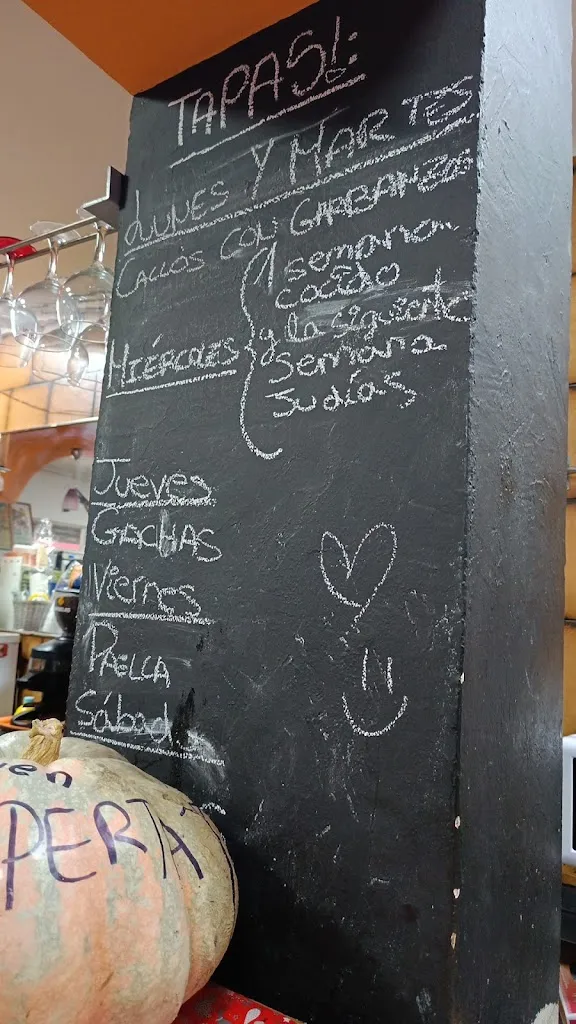 TAPAS!:
LUNES Y MARTES
CALLOS CON GARBANZOS
MIÉRCOLES
1 semana
cocido
y la siguiente
semana
Judías
Jueves
GACHAS
Viernes
PAELLA
Sábado
en
PERTA